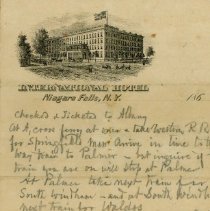 INTERNATIONAL HOTEL
Niagara Falls, N.Y. 186
Checked & Ticketed to Albany
At A, cross ferry at over & take Western R.R
for Springfield Mass Arrive in time to
Way train to Palmer - but inquire if
train you are on will stop at Palmer
At Palmer take next train for
South Windham - and at South Windham
next train for